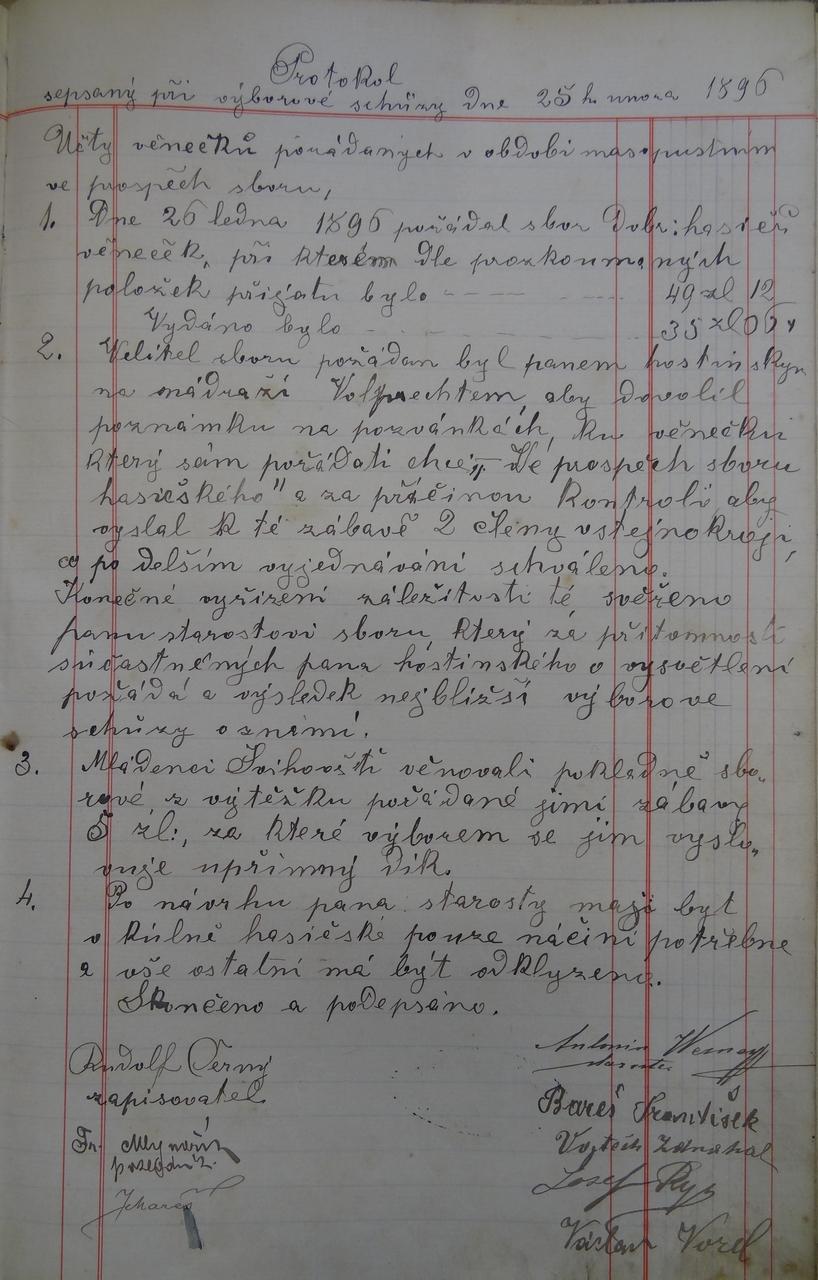 Protokol
sepsaný při výborové schůzy dne 25 h. unora 1896
Učty věnečků pořádaných v období masopustním
ve prospěch sboru,
1. Dne 26 ledna 1896 pořádal sbor Dobr: hasičů
věneček, při kterém dle prozkoumaných
položek přijatu bylo 49 zl 12
Vydáno bylo 35 zl 06
2. Velitel sboru požádan byl panem hostinským
na nádraží Volprechtem, aby dovolil
poznámku na pozvánkách, ku věnečku
který sám pořádati chce „Ve prospěch sboru
hasičského" a za příčinou kontroli, aby
vyslal k té zábavě 2 členy vstejnokroji,
co po delším vyjednávání schváleno.
Konečné vyřízení záležitosti té, svěřeno
panu starostovi sboru, který za přítomnosti
súčastněných pana hostinského o vysvětlení
požádá a výsledek nejbližší výborove
schůzy oznámí.
3. Mládenci Švihovští věnovali pokladně sbo„
rové z výtěžku pořádané jimi zábavy
5 zl:, za které výborem se jim vyslo„
vuje upřimný dík.
4. Po návrhu pana starosty maji byt
v kúlně hasičské pouze náčiní potřebne
a vše ostatní má být odklyzeno.
Skončeno a podepsáno.
Rudolf Černý
zapisovatel
Antonín
starosta
Bareš František
Fr. Mlynařík
Vojtěch Zdráhal
Josef Ryp
J Mareš
Václav Vorel